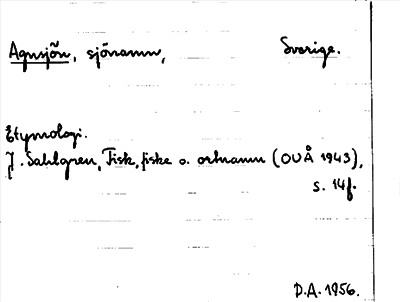 Agnsjön, sjönamn, Sverige.
Etymologi.
J. Sahlgren, Fisk, fiske o. ortnamn (OUÅ 1943),
s. 14f.
D.A. 1956.